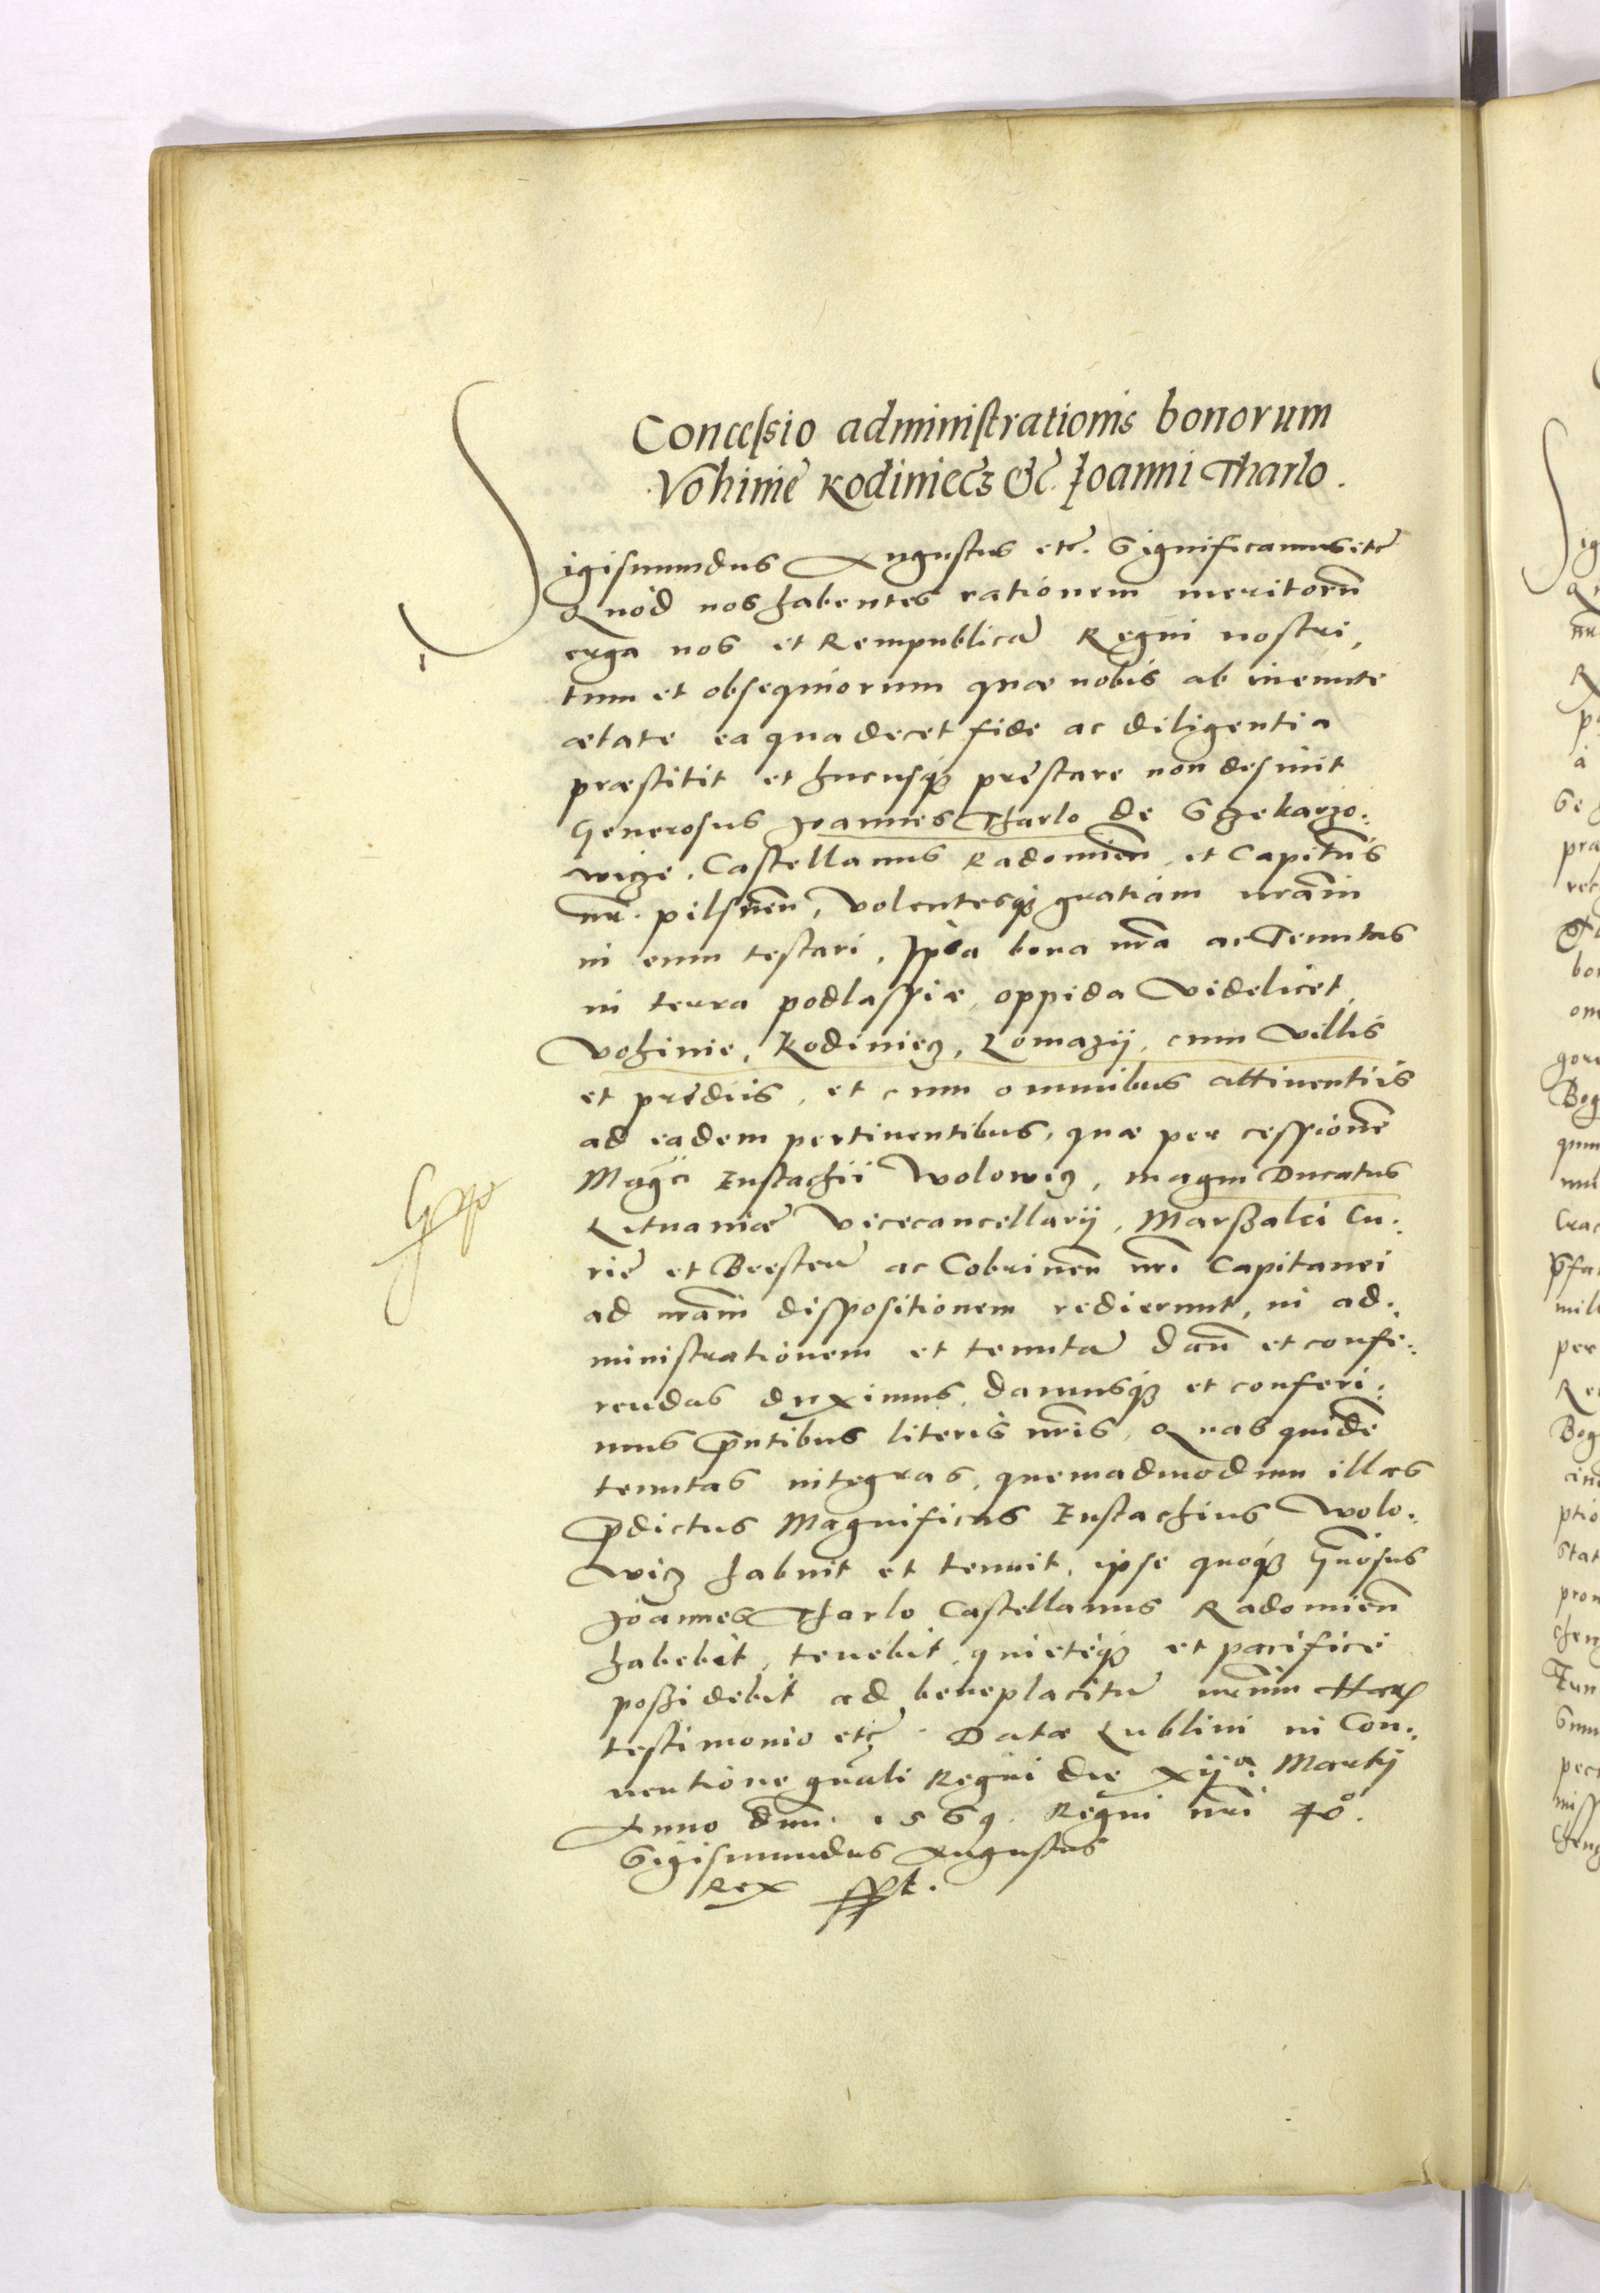 Concessio administrationis bonorum
Vohiniē Kodiniecz &c̃. Joanni Tharlo.
Sigismundus Augustus etc̃. Significamus etc̃
Quod nos habentes rationem meritorũ
erga nos et Rempublicā Regni nostri,
tum et obsequiorum quæ nobis ab ineunte
ætate ea qua decet fide ac diligentia
præstitit et hucusq; prestare non desinit
Generosus Joannes Tharlo de Szekarzo.
wicze. Castellanus Radomieñ. et Capitñs
nr̃. pilsneñ, volentesq; gratiam nr̃am
in eum testari, Ipsa bona nr̃a ac Tenutas
in terra podlassiæ, oppida videlicet,
Vohinie, Kodiniecz, Lomazÿ, cum villis
et prediis, et cum omnibus attinentiis
ad eadem pertinentibus, quæ per cessionē
Mag̃ci Eustachii Wolowicz, magni Ducatus
Lituaniæ Vicecancellarÿ, Marszalci Cu.
rię et Bresteñ ac Cobrineñ nr̃i Capitanei
ad nr̃am disspositionem redierunt, in ad.
ministrationem et tenutā dañ et confe.
rendas duximus, damusq; et conferi.
mus p̃ntibus literis nr̃is, Quas quidē
tenutas integras, quemadmodum illas
p̃dictus Magnificus Eustachius Wolo.
wicz habuit et tenuit, ipse quoq; Gñosus
Joannes Tharlo Castellanus Radomieñ
habebit, tenebit, quieteq; et pacifice
possidebit ad beneplacitū nr̃um Harũ
testimonio etc̃. Datæ Lublini in Con.
uentione gñali Regni die xijᵃ. Martÿ
Anno dñi. 1569. Regni nr̃i 40°.
Sigismundus Augustus
Rex sspt.